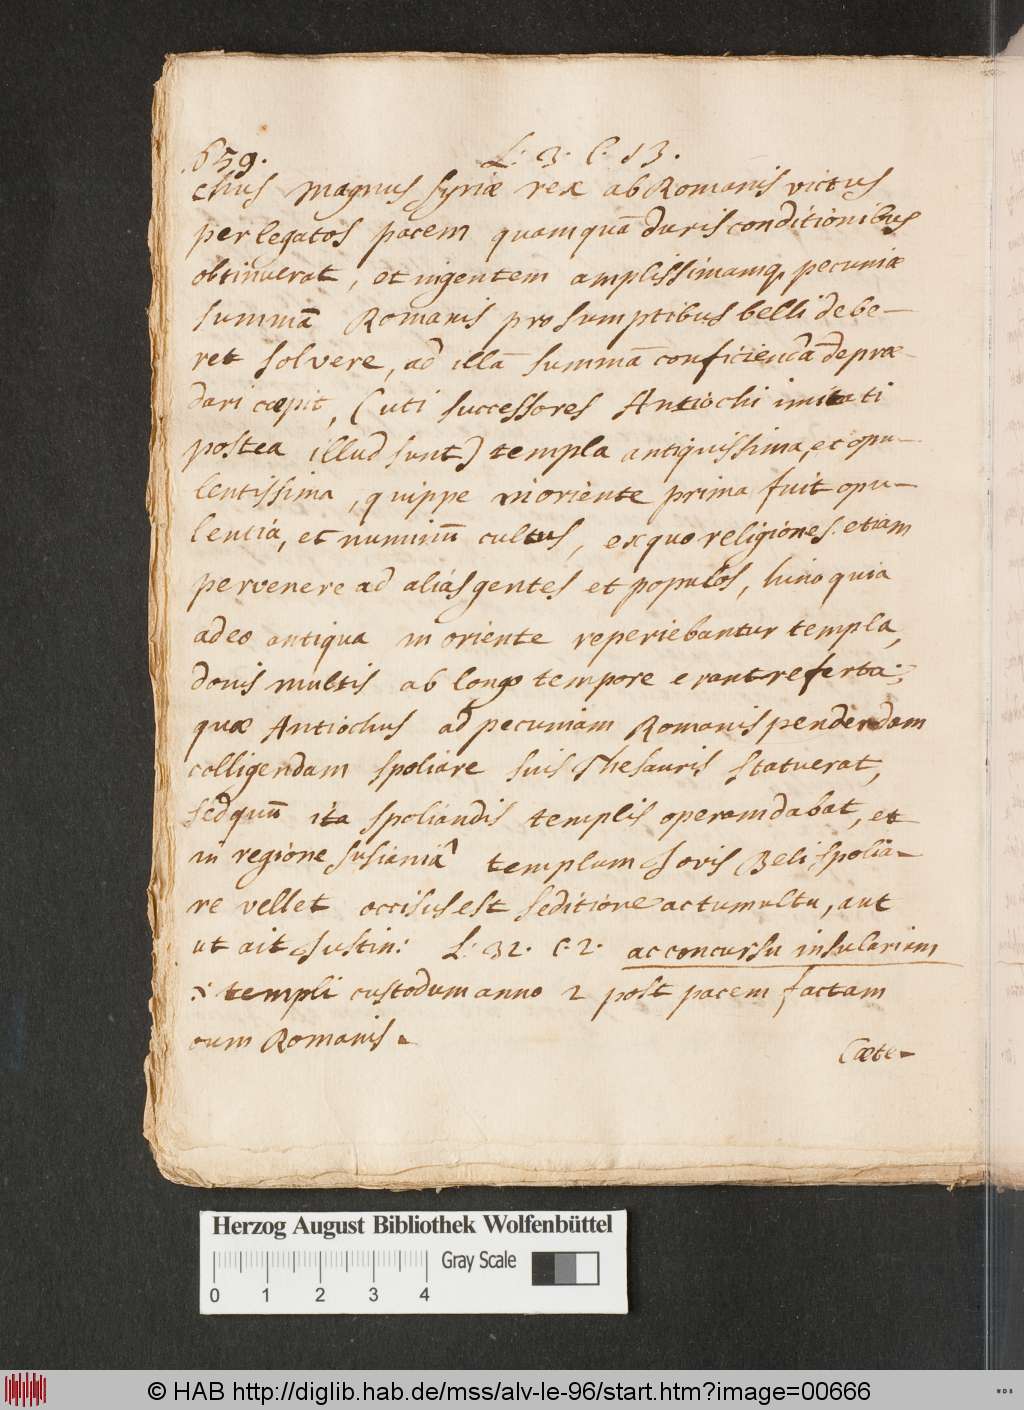 659.
L: 3. C. 13.
chus magnus Syriæ rex ab Romanis victus
per legatos pacem quamquā duris conditionibus
obtinuerat, et ingentem amplissimamq, pecuniæ
summā Romanis pro sumptibus belli debe-
ret solvere, ad illā summā conficiendā depræ-
dari cæpit, (uti successores Antiochi imitati
postea illud sunt) templa antiquissima, et opu-
lentissima, quippe in oriente prima fuit opu-
lentia, et numinū cultus, ex quo religiones etiam
pervenere ad alias gentes et populos, hinc quia
adeo antiqua in oriente reperiebantur templa,
donis multis ab longo tempore erant referta;
quæ Antiochus ad pecuniam Romanis pendendam
colligendam spoliare suis Thesauris statuerat,
sed quū ita spoliandis templis operam dabat, et
in regione Susianiā templum Jovis Beli spolia-
re vellet occisus est seditione ac tumultu, aut
ut ait Justin: L: 32. C. 2. ac concursu insulariam
templi custodum anno 2 post pacem factam
cum Romanis.
Cæte-
Herzog August Bibliothek Wolfenbüttel
Gray Scale
0 1 2 3 4
© HAB http://diglib.hab.de/mss/alv-le-96/start.htm?image=00666